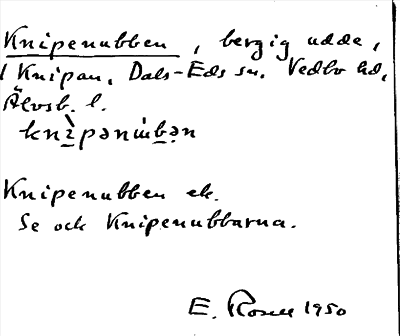 Knipenubben, bergig udde,
i Knipan, Dals-Eds sn. Vedbo hd,
Älvsb. l.
knìpənùbən
Knipenubben ek.
Se och Knipenubbarna.
E. Rosell 1950